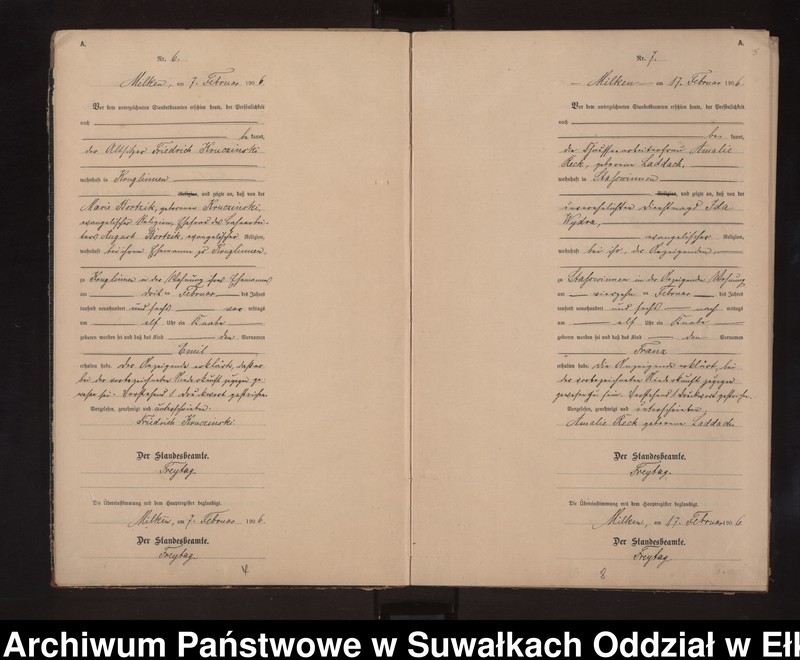 A.
Nr. 6.
Milken, am 7. Februar 1906.
Vor dem unterzeichneten Standesbeamten erschien heute, der Persönlichkeit
nach
bekannt,
der Altsitzer Friedrich Kruczinski
wohnhaft in Konglinnen
Religion, und zeigte an, daß von der
Marie Bortzik, geborene Kruczinski,
evangelischer Religion, Ehefrau des
August Bortzik, evangelischer Religion,
wohnhaft bei ihrem Ehemanne zu Konglinnen,
zu Konglinnen in der Wohnung ihres Ehemannes
am drit en Februar des Jahres
tausend neunhundert und sechs vor mittags
um elf Uhr ein Knabe
geboren worden sei und daß das Kind den Vornamen
Emil
erhalten habe. Der Anzeigende erklärte, daß er
bei der vorbezeichneten Niederkunft zugegen ge-
wesen sei. Vorstehend 1 Druckwort gestrichen.
Vorgelesen, genehmigt und unterschrieben.
Friedrich Kruczinski.
Der Standesbeamte.
Freytag.
Die Übereinstimmung mit dem Hauptregister beglaubigt.
Milken, am 7. Februar 1906.
Der Standesbeamte.
Freytag.
A.
Nr. 7.
Milken am 17. Februar 1906.
Vor dem unterzeichneten Standesbeamten erschien heute, der Persönlichkeit
nach
bekannt,
die Chausseearbeiterfrau Amalie
Reck, geborene Laddach,
wohnhaft in Staßwinnen
Religion, und zeigte an, daß von der
unverehelichten Dienstmagd Ida
Wydra,
evangelischer Religion,
wohnhaft bei ihr, der Anzeigenden
zu Staßwinnen in der Anzeigenden Wohnung
am vierzehn en Februar des Jahres
tausend neunhundert und sechs nach mittags
um elf Uhr ein Knabe
geboren worden sei und daß das Kind den Vornamen
Franz
erhalten habe. Die Anzeigende erklärt, bei
der vorbezeichneten Niederkunft zugegen
gewesen zu sein. Vorstehend 1 Druckwort gestrichen.
Vorgelesen, genehmigt und unterschrieben
Amalie Reck geborene Laddach
Der Standesbeamte.
Freytag.
Die Übereinstimmung mit dem Hauptregister beglaubigt.
Milken, am 17. Februar 1906
Der Standesbeamte.
Freytag
8
Archiwum Państwowe w Suwałkach Oddział w Ełk